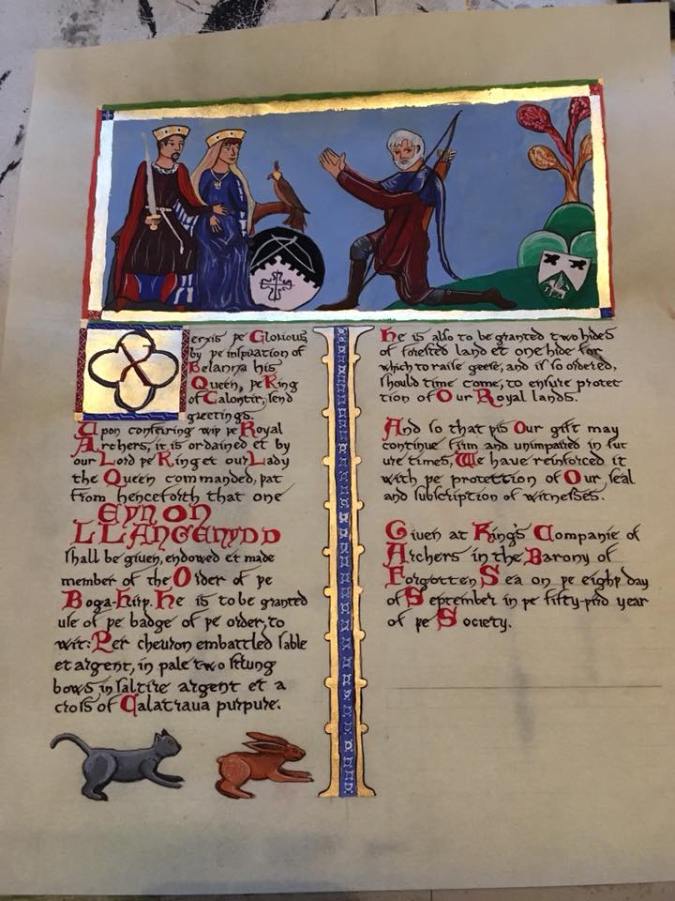 Xerxis þe Glorious
by þe inspiration of
Belanna his
Queen, þe King
of Calontir, send
greetings.
Upon conferring wiþ þe Royal
Archers, it is ordained et by
our Lord þe King et our Lady
the Queen commanded, þat
from henceforth that one
EYNON
LLANGENYDD
shall be given, endowed et made
member of the Order of þe
Boga-hirþ. He is to be granted
use of þe badge of þe order, to
wit: Per chevron embattled sable
et argent, in pale two strung
bows in saltire argent et a
cross of Calatrava purpure.
He is also to be granted two hides
of forested land et one hide for
which to raise geese, and if so ordered,
should time come, to ensure protec
tion of Our Royal lands.
And so that þis Our gift may
continue firm and unimpaired in fut
ure times, We have reinforced it
with þe protection of Our seal
and subscription of witnesses.
Given at King's Companie of
Archers in the Barony of
Forgotten Sea on þe eighþ day
of September in þe fifty-þird year
of þe Society.